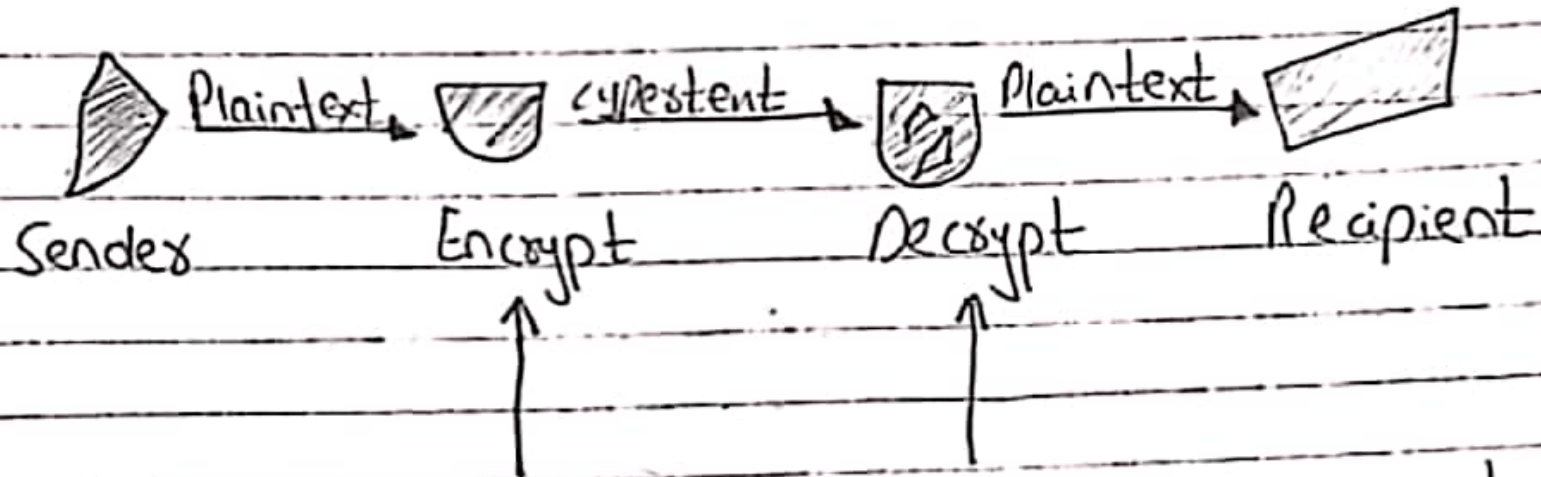 Plaintext cypestent Plaintext
Sender Encrypt Decrypt Recipient